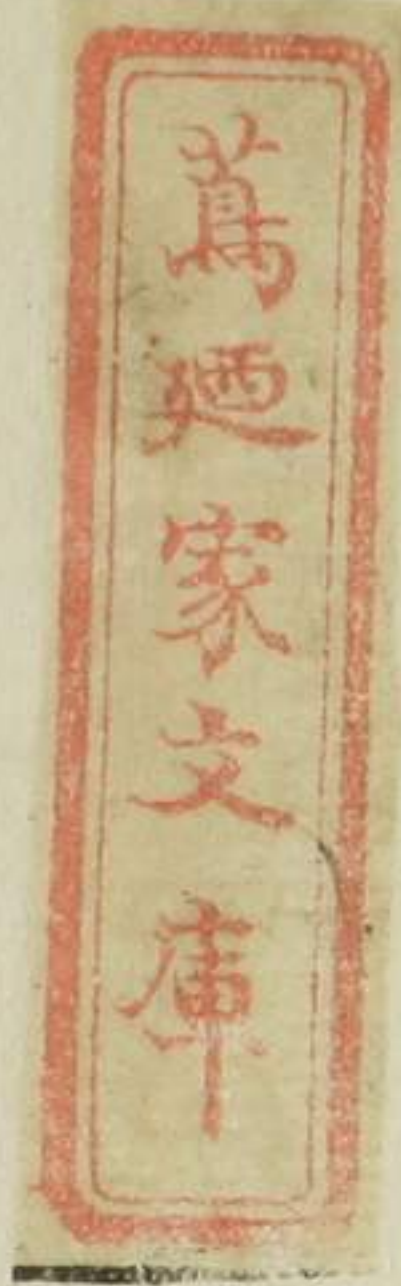 蔦廼家文庫